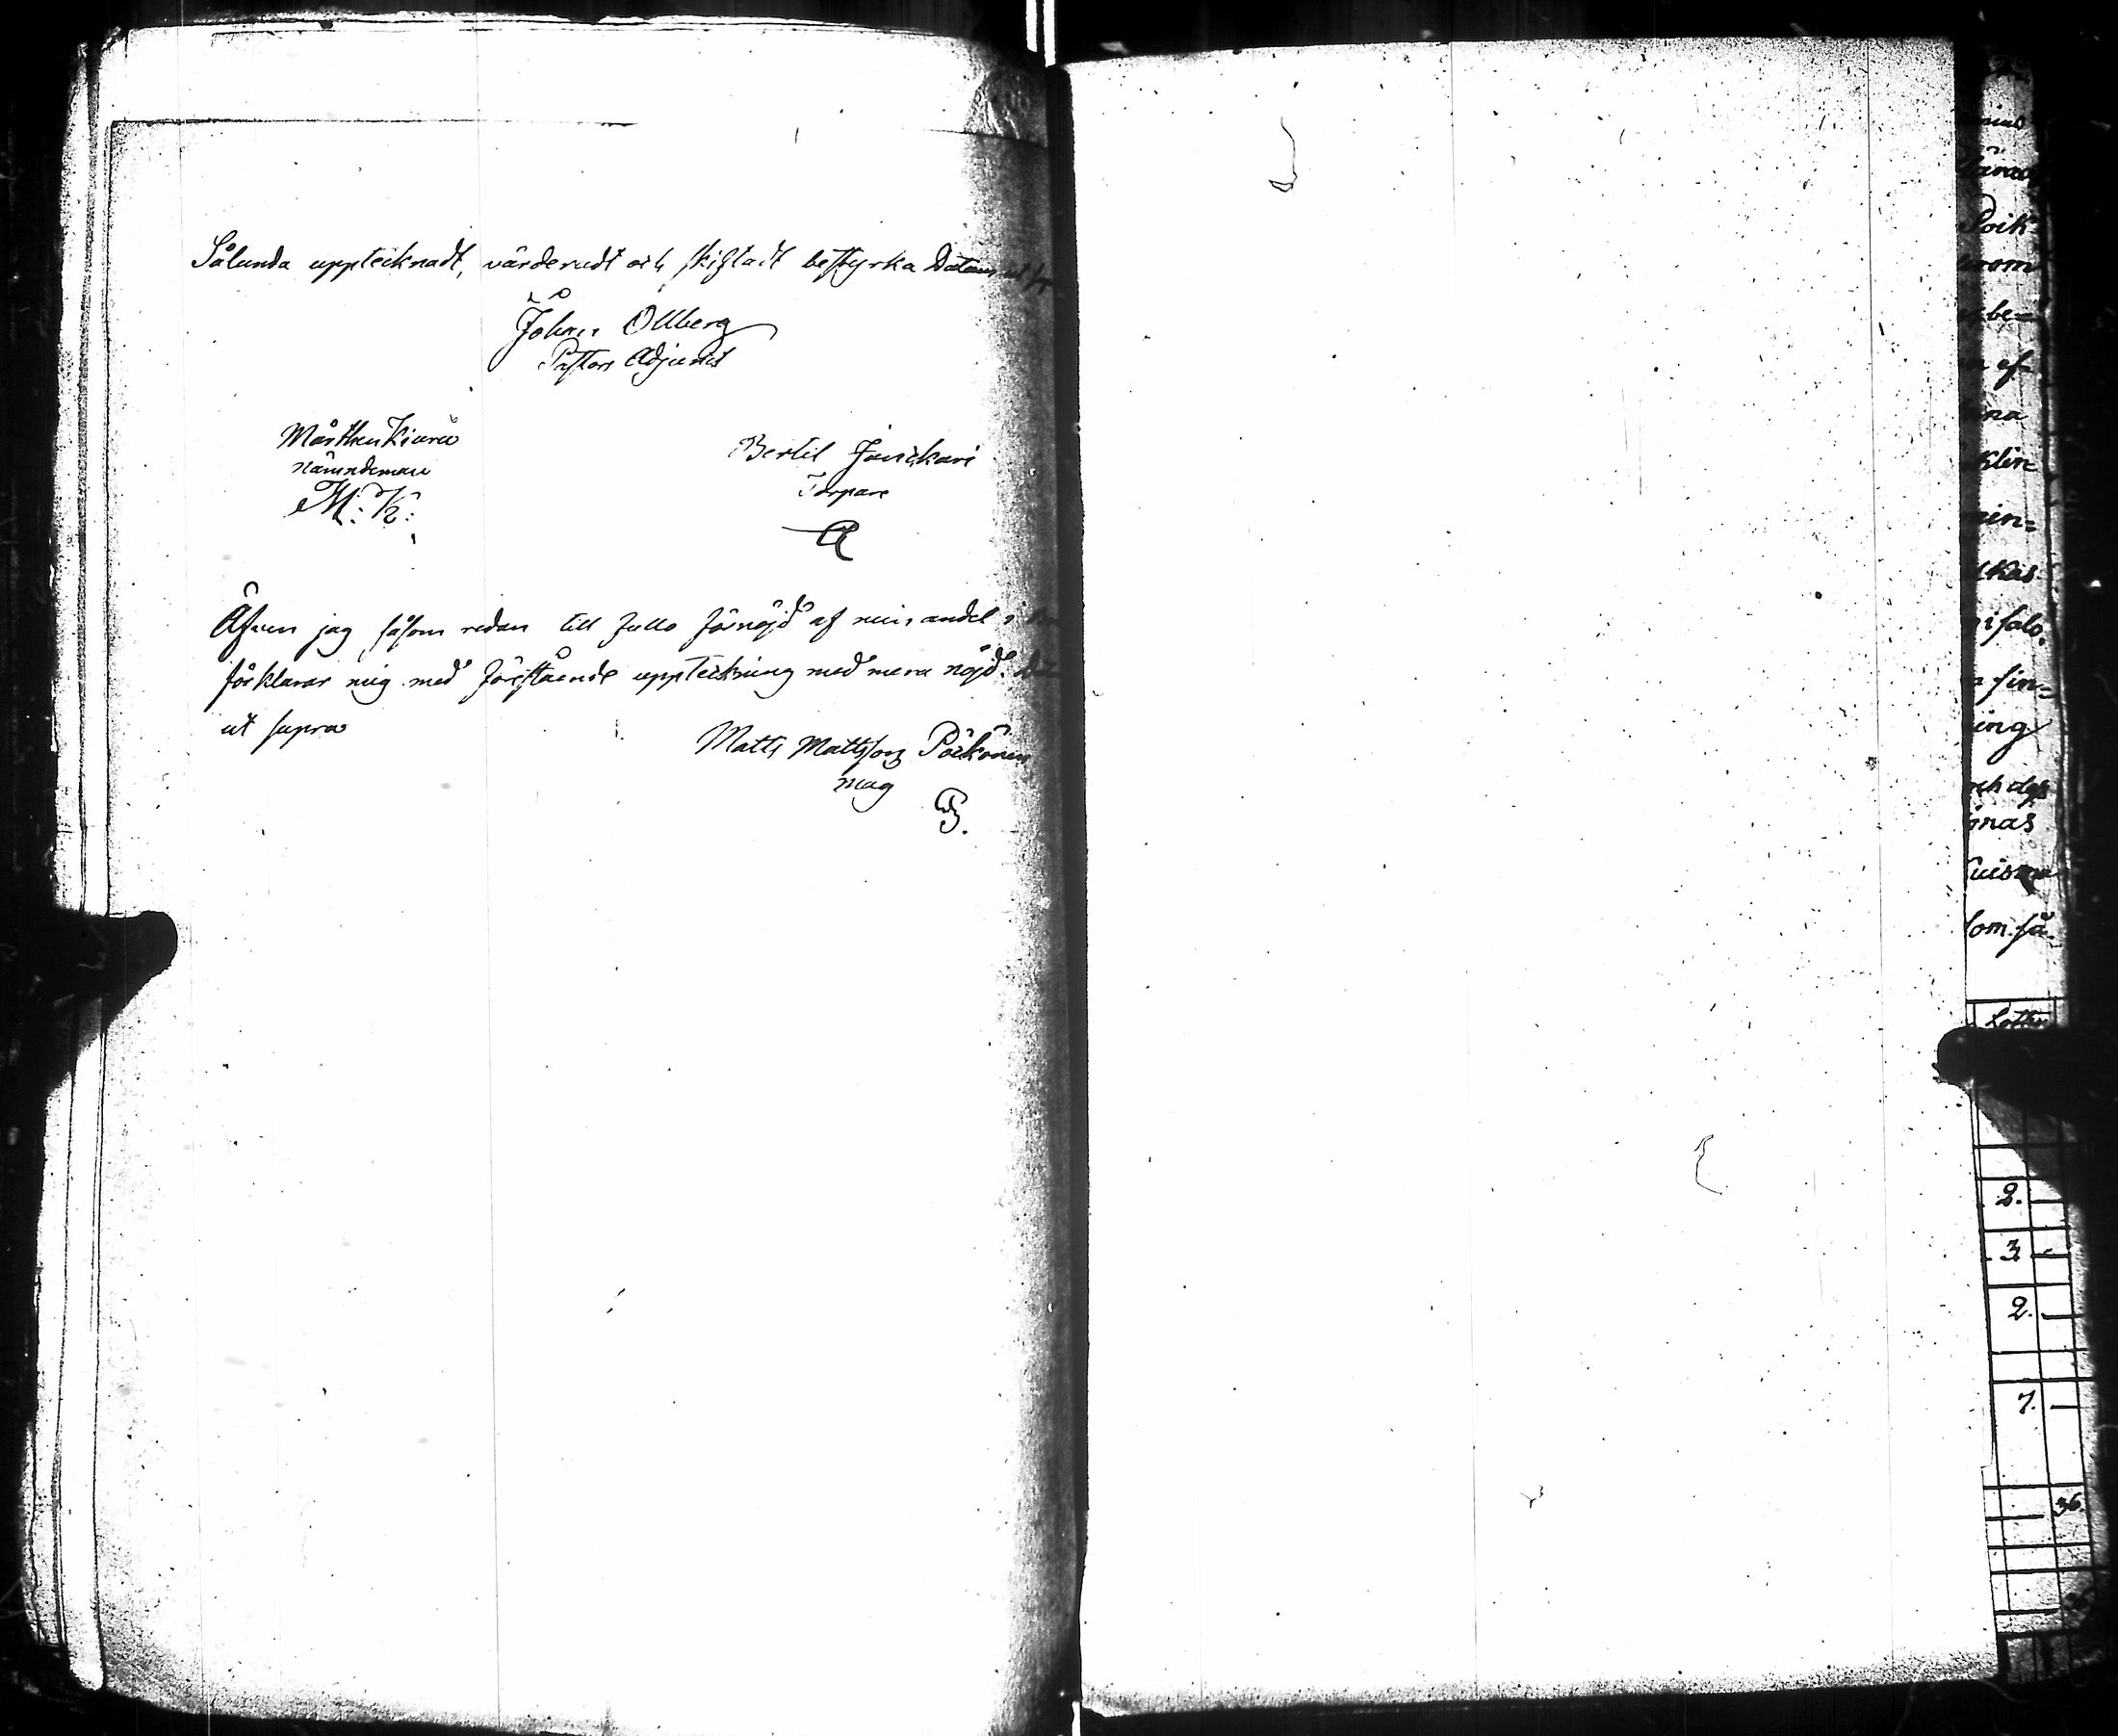 Sålunda upptecknadt, värderadt och skiftadt bestyrka Datum ut
Johan Ollberg
Pastors Adjunct
Mårthen Kiuru
nämndeman
M: K:
Bertil Jauckari
Torpare
Äfven jag såsom redan till fullo förnöjd af min andel i
förklarar mig med förestående uppteckning med mera nöjd.
ut supra
Matts Mattsson Poikonen
mag
Poik
rom
be=
ef=
na
klin
min=
kas
i salo.
sin=
ing
och dess
inas
om så
Lotten
2.
3
2.
7.
36.